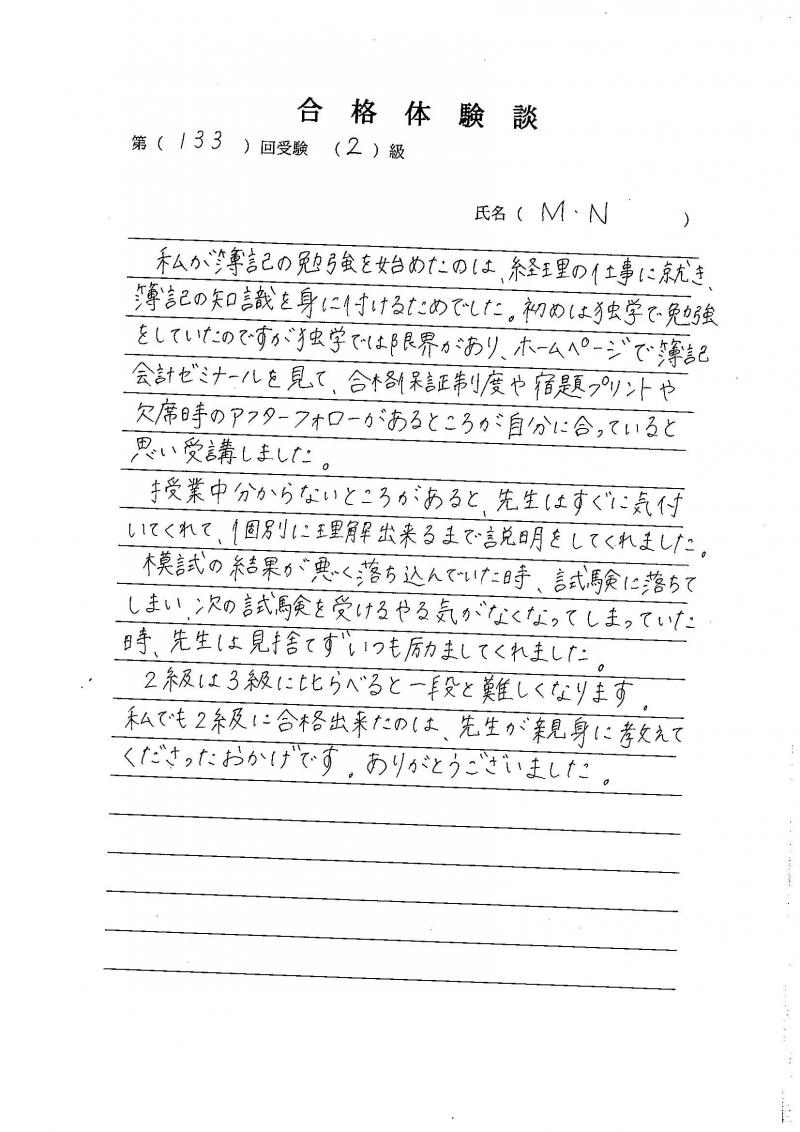 合格体験談
第（133）回受験（2）級
氏名（M・N）
私が簿記の勉強を始めたのは、経理の仕事に就き、
簿記の知識を身に付けるためでした。初めは独学で勉強
をしていたのですが独学では限界があり、ホームページで簿記
会計ゼミナールを見て、合格保証制度や宿題プリントや
欠席時のアフターフォローがあるところが自分に合っていると
思い受講しました。
授業中分からないところがあると、先生はすぐに気付
いてくれて、個別に理解出来るまで説明をしてくれました。
模試の結果が悪く落ち込んでいた時、試験に落ちて
しまい、次の試験を受けるやる気がなくなってしまっていた
時、先生は見捨てずいつも励ましてくれました。
2級は3級に比らべると一段と難しくなります。
私でも2級に合格出来たのは、先生が親身に教えて
くださったおかげです。ありがとうございました。